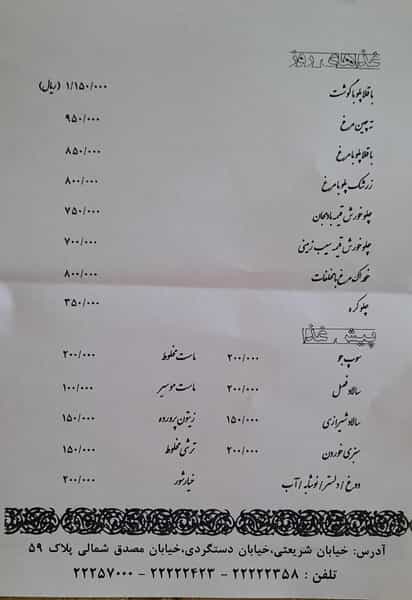 غذاهای روز
باقلاپلو با گوشت ۱/۱۵۰/۰۰۰ (ریال)
ته چین مرغ ۹۵۰/۰۰۰
باقلاپلو با مرغ ۸۵۰/۰۰۰
زرشک پلو با مرغ ۸۰۰/۰۰۰
چلو خورش قیمه بادمجان ۷۵۰/۰۰۰
چلو خورش قیمه سیب زمینی ۷۰۰/۰۰۰
خوراک مرغ با مخلفات ۸۰۰/۰۰۰
چلو کره ۳۵۰/۰۰۰
پیش غذا
سوپ جو ۲۰۰/۰۰۰ ماست مخلوط ۲۰۰/۰۰۰
سالاد فصل ۲۰۰/۰۰۰ ماست موسیر ۱۰۰/۰۰۰
سالاد شیرازی ۱۵۰/۰۰۰ زیتون پرورده ۱۵۰/۰۰۰
سبزی خوردن ۲۰۰/۰۰۰ ترشی مخلوط ۱۵۰/۰۰۰
دوغ / دلستر / نوشابه / آب خیارشور ۲۰۰/۰۰۰
آدرس: خیابان شریعتی،خیابان دستگردی،خیابان مصدق شمالی پلاک ۵۹
تلفن : ۲۲۲۲۲۳۵۸ - ۲۲۲۲۲۴۲۳ - ۲۲۲۵۷۰۰۰